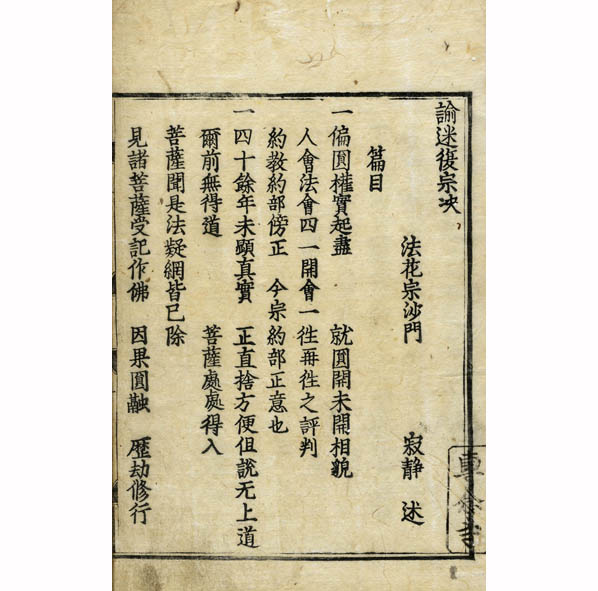 諭迷復宗决
法花宗沙門 寂静 述
篇目
一 偏圓權實起盡 就圓開未開相貌
人會法會四一開會一徃再徃之評判
約教約部傍正 今宗約部正意也
一 四十餘年未顕真實 正直捨方便但說无上道
爾前無得道 菩薩處處得入
菩薩聞是法疑網皆已除
見諸菩薩受記作佛 因果圓融 歴劫修行